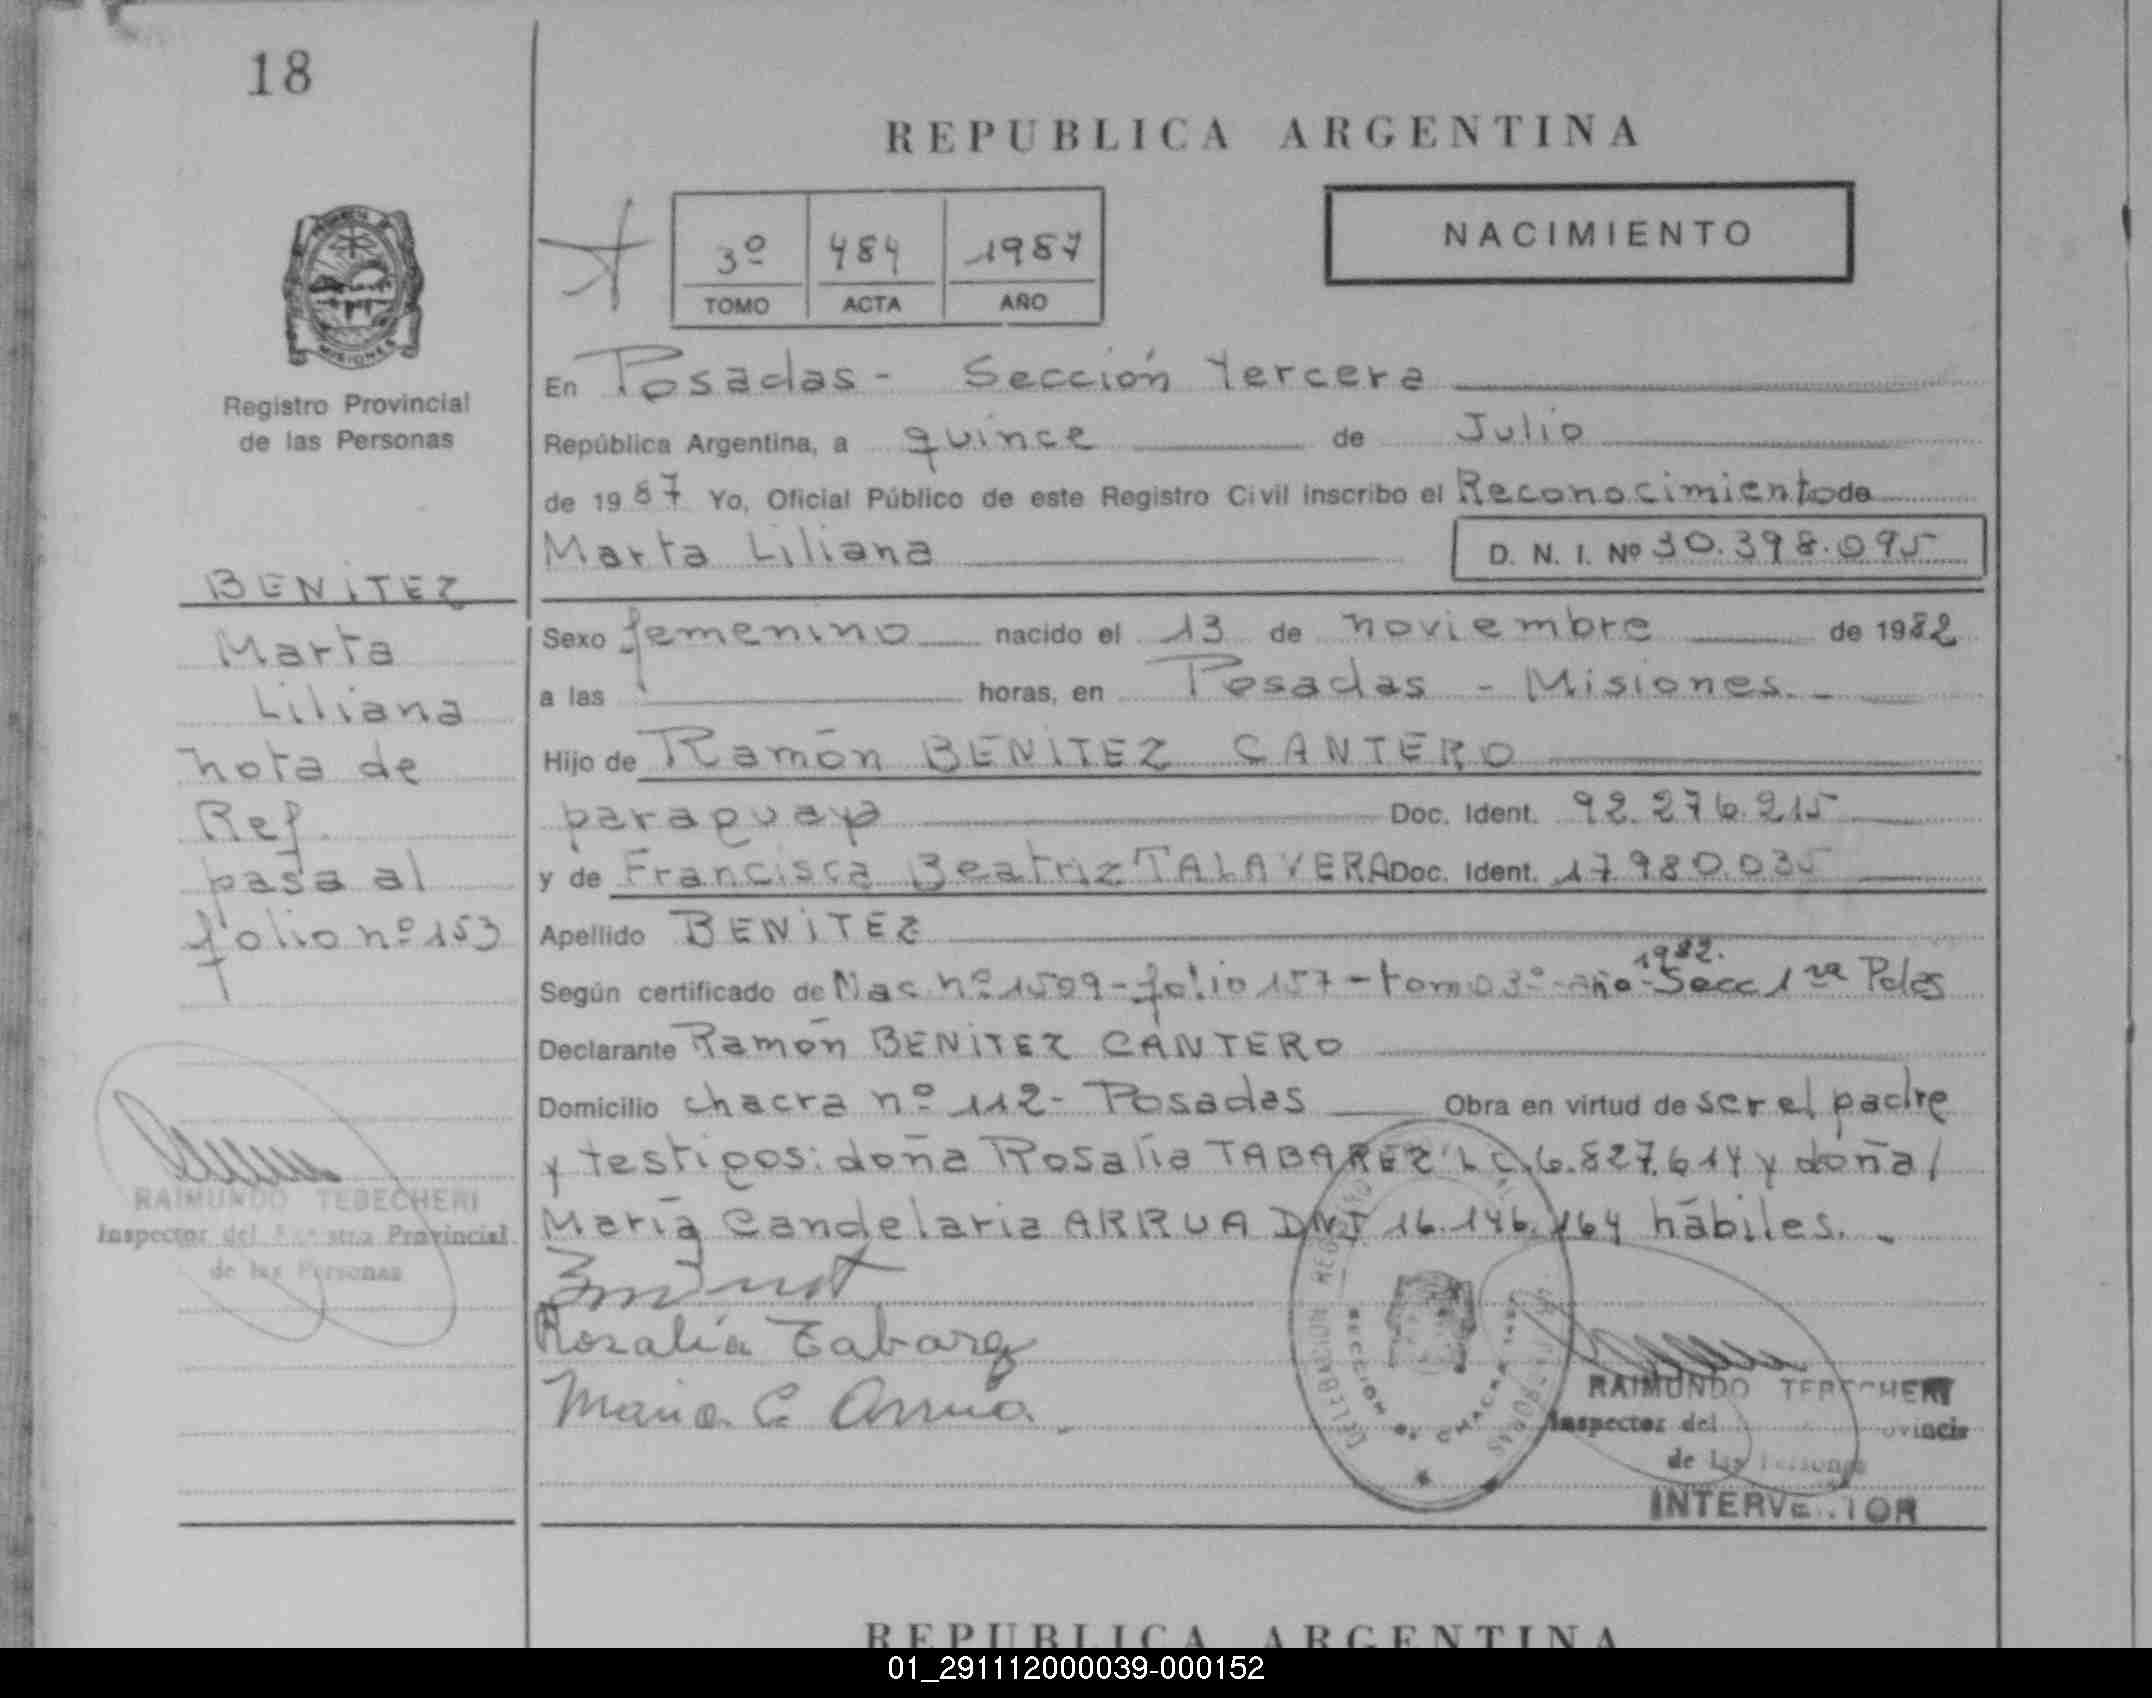 18
REPUBLICA ARGENTINA
3º 484 1987
TOMO ACTA AÑO
NACIMIENTO
MISIONES
Registro Provincial
de las Personas
En Posadas - Sección Tercera
República Argentina, a quince de Julio
de 1987 Yo, Oficial Público de este Registro Civil inscribo el Reconocimiento de
Marta Liliana D. N. I. Nº 30.398.095
BENITEZ
Marta
Liliana
nota de
Ref.
pasa al
folio nº 153
Sexo femenino nacido el 13 de noviembre de 1982
a las horas, en Posadas - Misiones.-
Hijo de Ramón BENITEZ CANTERO
paraguayo Doc. Ident. 92.276.215
y de Francisca Beatriz TALAVERA Doc. Ident. 17.980.035
Apellido BENITEZ
1982.
Según certificado de Nac nº 1509 - folio 157 - tomo 3º - año - Secc 1ra Pdas
Declarante Ramón BENITEZ CANTERO
Domicilio chacra nº 112 - Posadas Obra en virtud de ser el padre
y testigos: doña Rosalía TABAREZ L C. 6.827.614 y doña /
María Candelaria ARRUA DNI 16.146.164 hábiles. -
Rosalía Tabarez
Maria C. Arrua
RAIMUNDO TEBECHERI
Inspector del Provincial
de las Personas
SECCION 3ª CHACRA
RAIMUNDO TEBECHERI
Inspector del
de las Personas
INTERVENTOR
REPUBLICA ARGENTINA
01_291112000039-000152